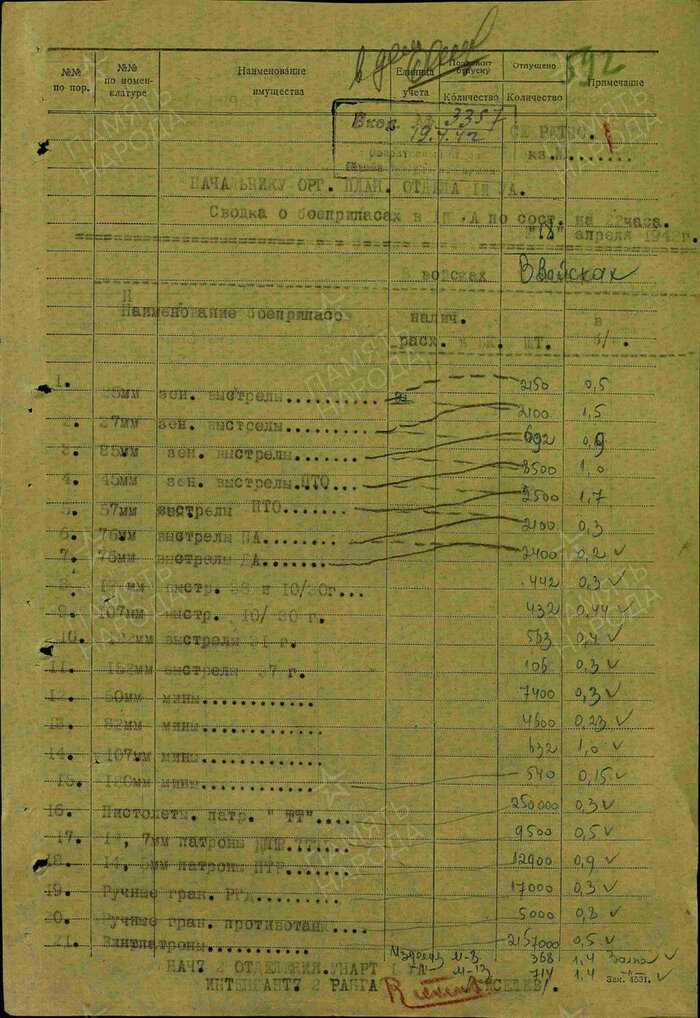 592
№№ по пор. №№ по номенклатуре. Наименование имущества Единица учета Подлежит отпуску Количество Отпущено Количество Примечание
Вход. № 3357
19.4.42
Оперативный
СЕКРЕТНО.
экз.№.......
НАЧАЛЬНИКУ ОРГ. ПЛАН. ОТДЕЛА
Сводка о боеприпасах в по сост. на часа.
"18" апреля 1942г.
В войсках В войсках
Наименование боеприпасов налич. в
расх. в шт. б/к.
1. 25мм зен. выстрелы.......... 2150 0,5
2. 37мм зен. выстрелы........ 2100 1,5
3. 85мм зен. выстрелы....... 692 0,9
4. 45мм зен. выстрелы.ПТО... 8500 1,0
5. 57мм выстрелы ПТО....... 2500 1,7
6. 76мм выстрелы ПА........ 2100 0,3
7. 76мм выстрелы ДА........ 2400 0,2 ✓
8. выстр. и 10/30г... 442 0,3 ✓
9. 107мм выстр. 10/30 г. 432 0,44 ✓
10. выстрелы г. 563 0,4 ✓
11. 152мм выстрелы 37 г. 106 0,3 ✓
12. 50мм мины............ 7400 0,3 ✓
13. 82мм мины........... 4600 0,23 ✓
14. 107мм мины.......... 632 1,0 ✓
15. 120мм мины.......... 540 0,15 ✓
16. Пистолеты. патр. "ТТ".... 250000 0,3 ✓
17. 12, 7мм патроны 9500 0,5 ✓
18. 14, 5мм патроны ПТР...... 12900 0,9 ✓
19. Ручные гран. РГД......... 17000 0,3 ✓
20. Ручные гран. противотанк.... 5000 0,8 ✓
21. Винтпатроны............ 2157000 0,5 ✓
М-8 368 1,4
М-13 714 1.4
НАЧ7 2 ОТДЕЛЕНИЯ.УНАРТ
ИНТЕНДАНТ7 2 РАНГА
Зак. 4531.
ПАМЯТЬ НАРОДА